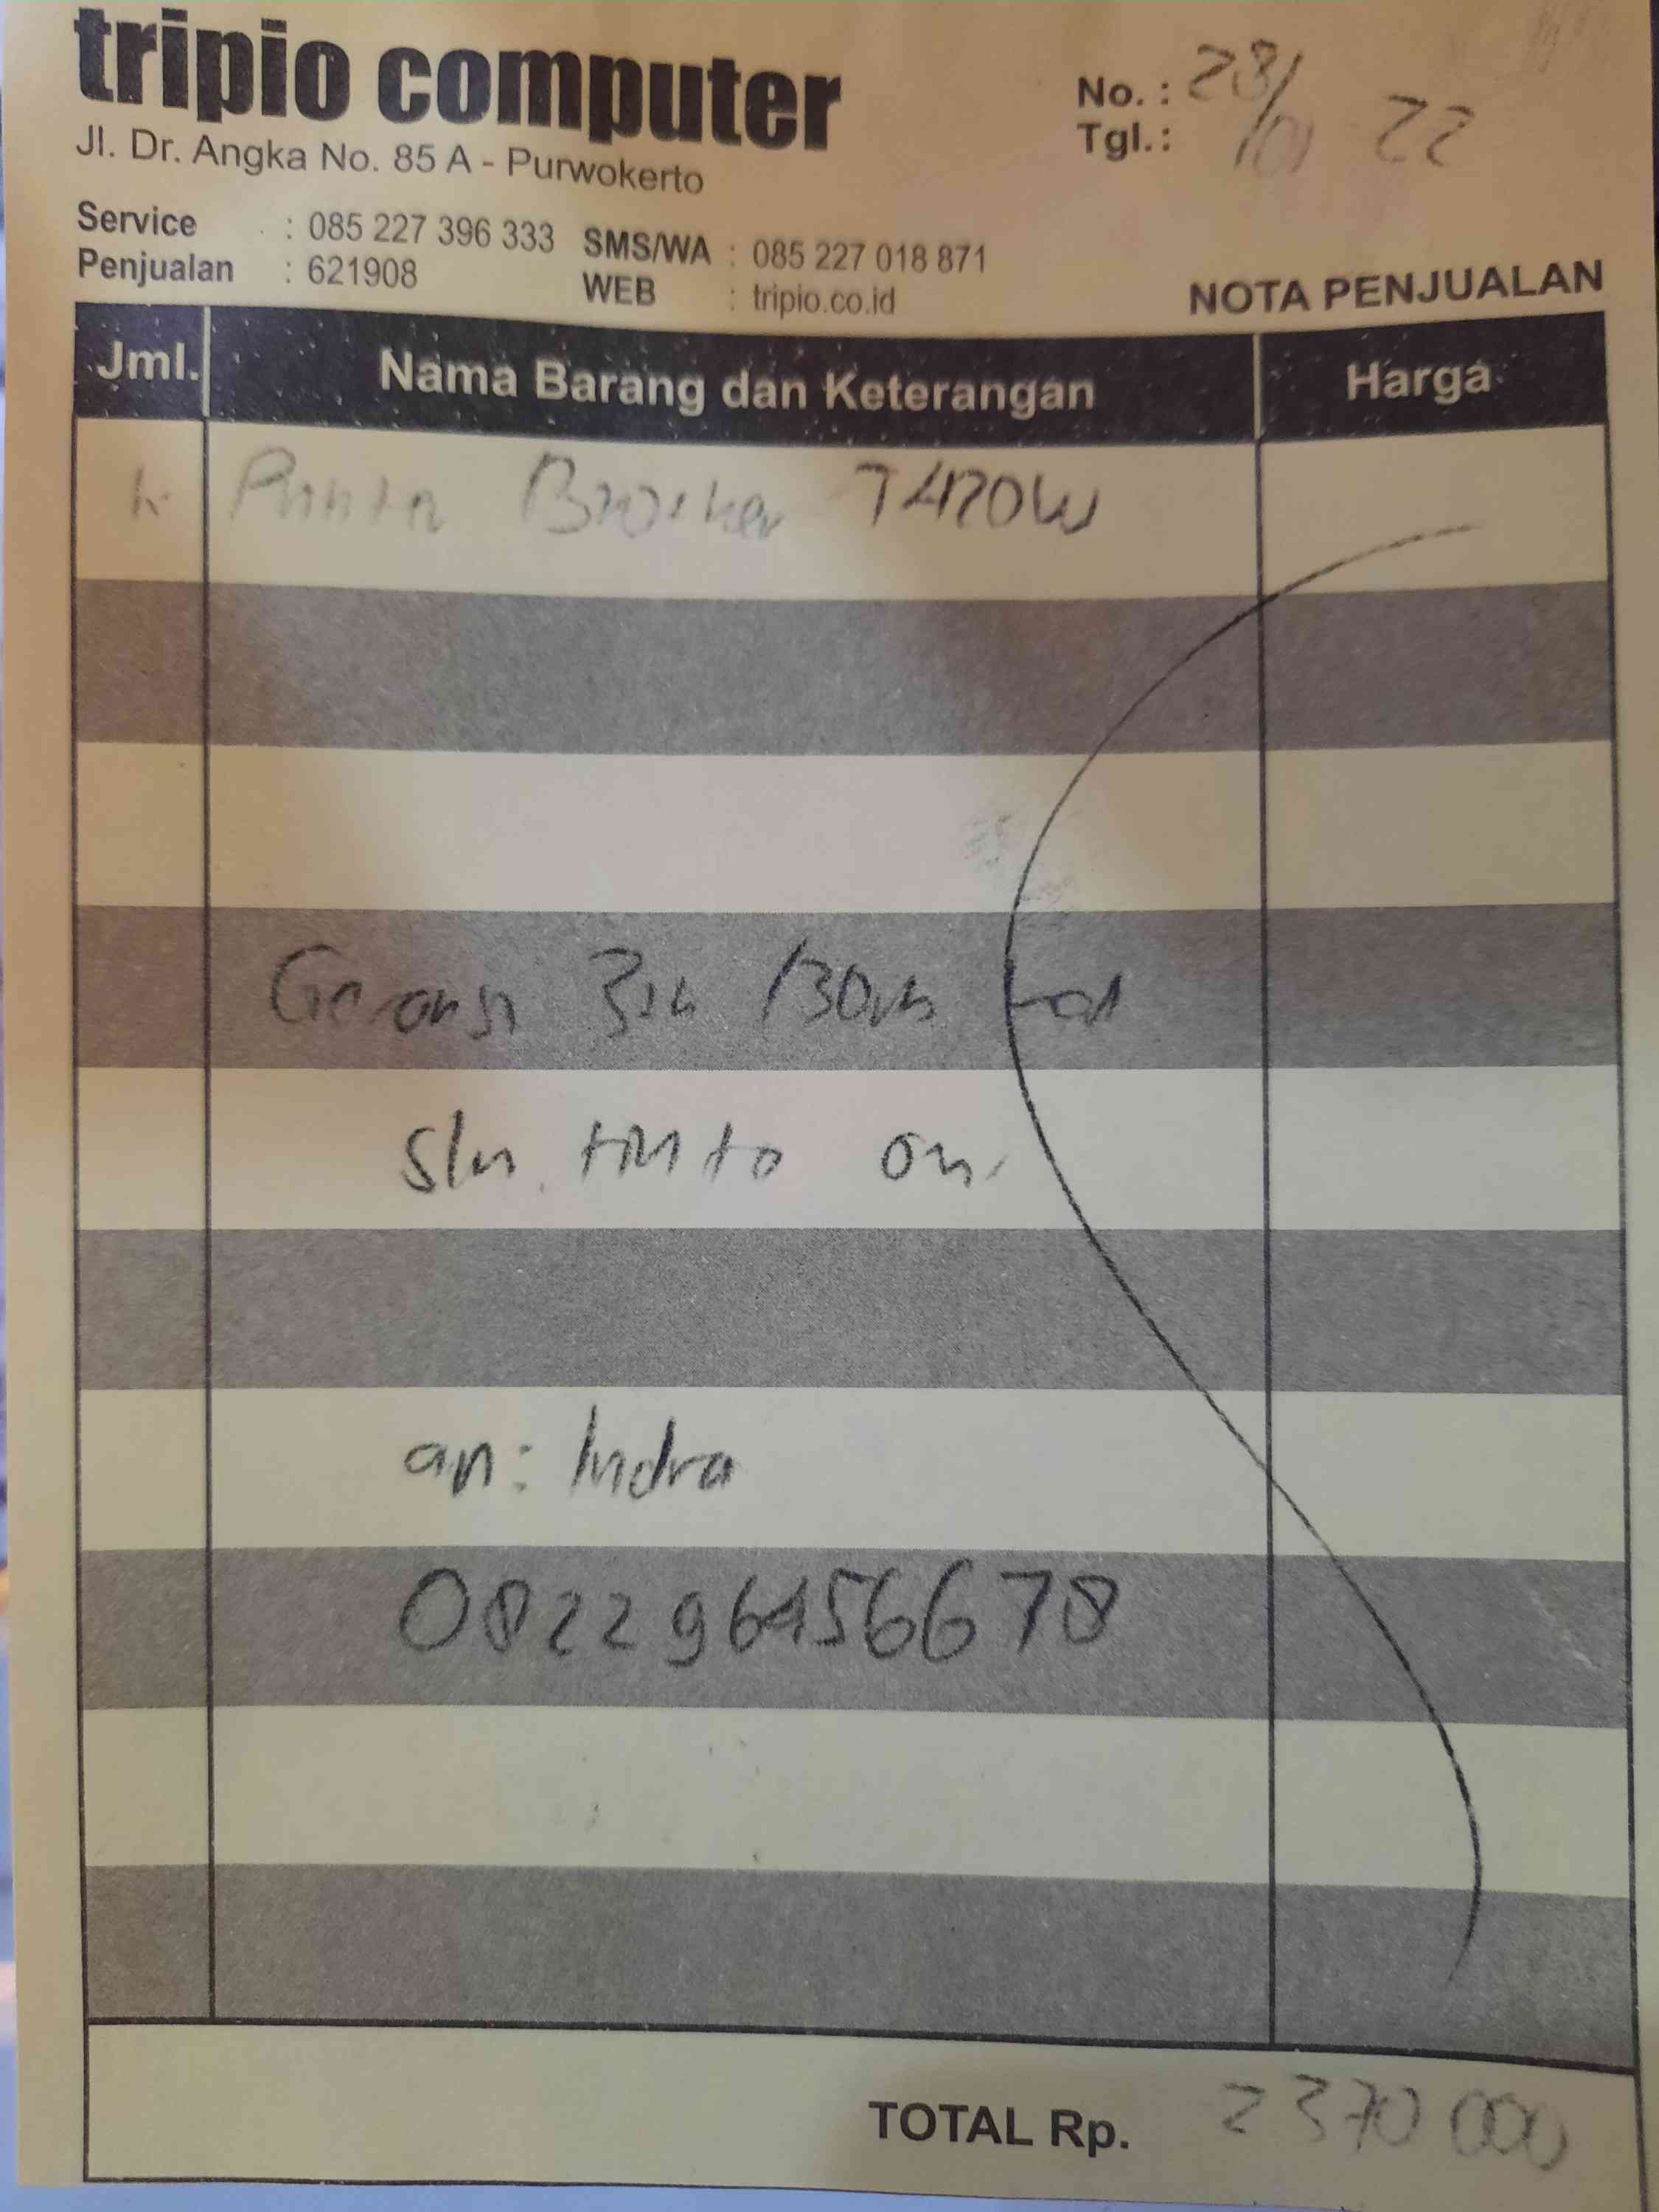 tripio computer
Jl. Dr. Angka No. 85 A - Purwokerto
No. : 28/
Tgl.: /01 22
Service : 085 227 396 333 SMS/WA : 085 227 018 871
Penjualan : 621908 WEB : tripio.co.id
NOTA PENJUALAN
Jml. Nama Barang dan Keterangan Harga
Printer Brother T420W
Garansi 3th /30rb
tinta on
an: Indra
082296456678
TOTAL Rp. 2370 000